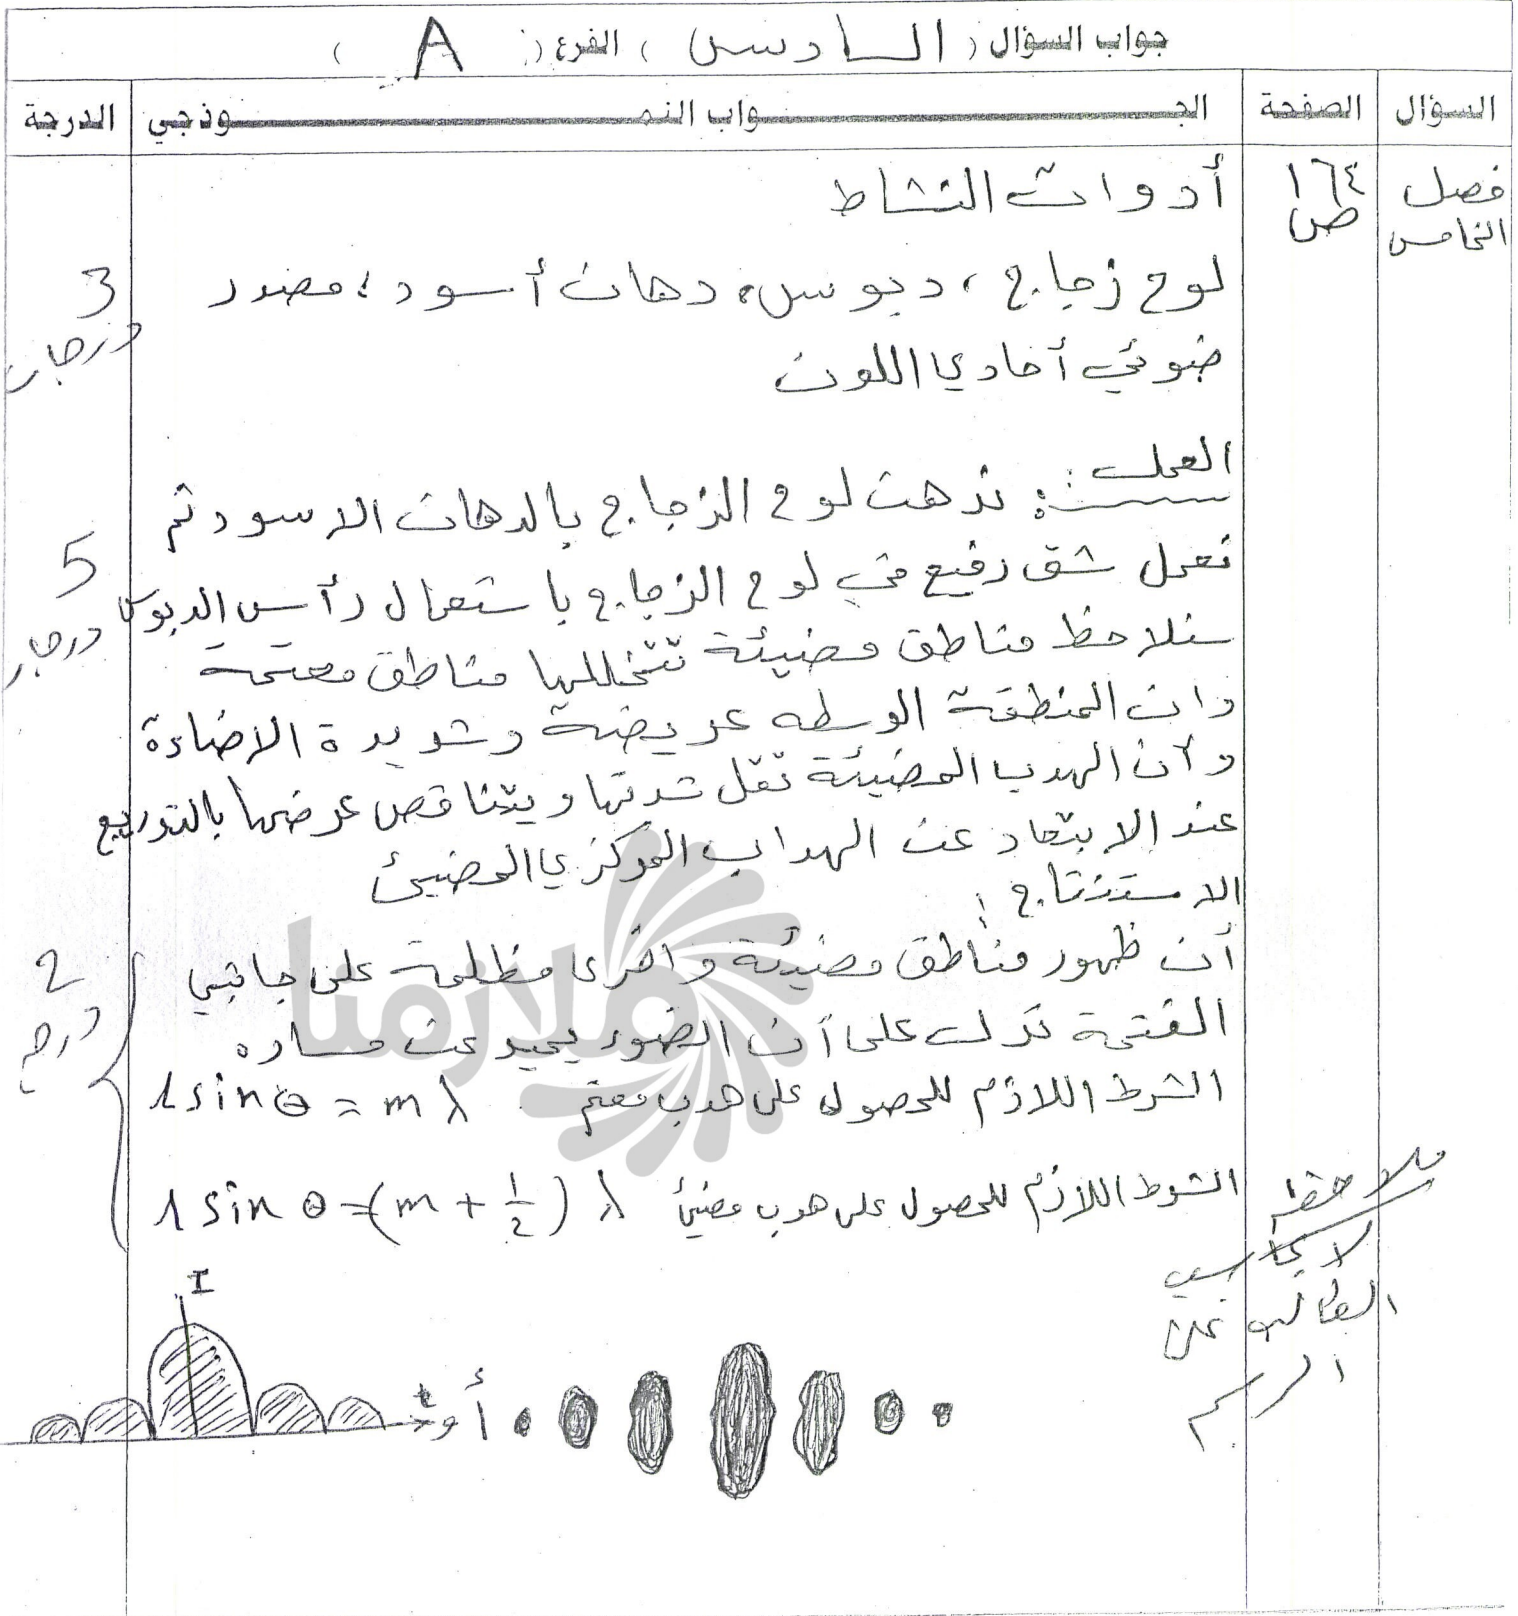 جواب السؤال ( السادس ) الفرع ( A )
السؤال الصفحة الجـــواب النمـــوذجي الدرجة
فصل الخامس
١٦٤
ص
أدوات النشاط
لوح زجاج ، دبوس ، دهان أسود ، مصدر
ضوئي أحادي اللون
3
درجات
العمل :
ندهن لوح الزجاج بالدهان الاسود ثم
نعمل شق رفيع في لوح الزجاج باستعمال رأس الدبوس
سنلاحظ مناطق مضيئة تتخللها مناطق معتمة
وان المنطقة الوسطه عريضة وشديدة الاضاءة
وان الهدب المضيئة تقل شدتها ويتناقص عرضها بالتدريج
عند الابتعاد عن الهداب المركزي المضيئ
5
درجات
الاستنتاج :
أن ظهور مناطق مضيئة واخرى مظلمة على جانبي
الفتحة تدل على أن الضوء يحيد عن مساره
الشرط اللازم للحصول على هدب معتم l sin θ = m λ
الشرط اللازم للحصول على هدب مضيئ l sin θ = (m + 1/2) λ
2
درجة
ملاحظة
لا يحاسب
الطالب على
الرسم
I
أو
ملازمنا